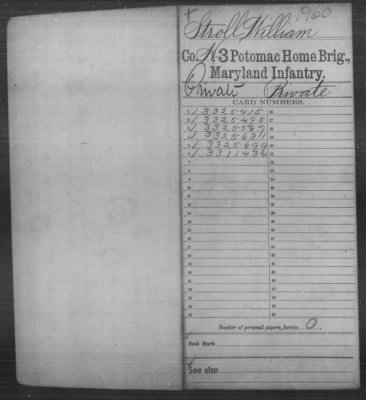 1960
Stroll William
Co. H, 3 Potomac Home Brig.,
Maryland Infantry.
Private Private
CARD NUMBERS.
1 3325415
2 3325495
3 3325567
4
5 3325699
6 3311434
Number of personal papers herein 0
Book Mark:
See also